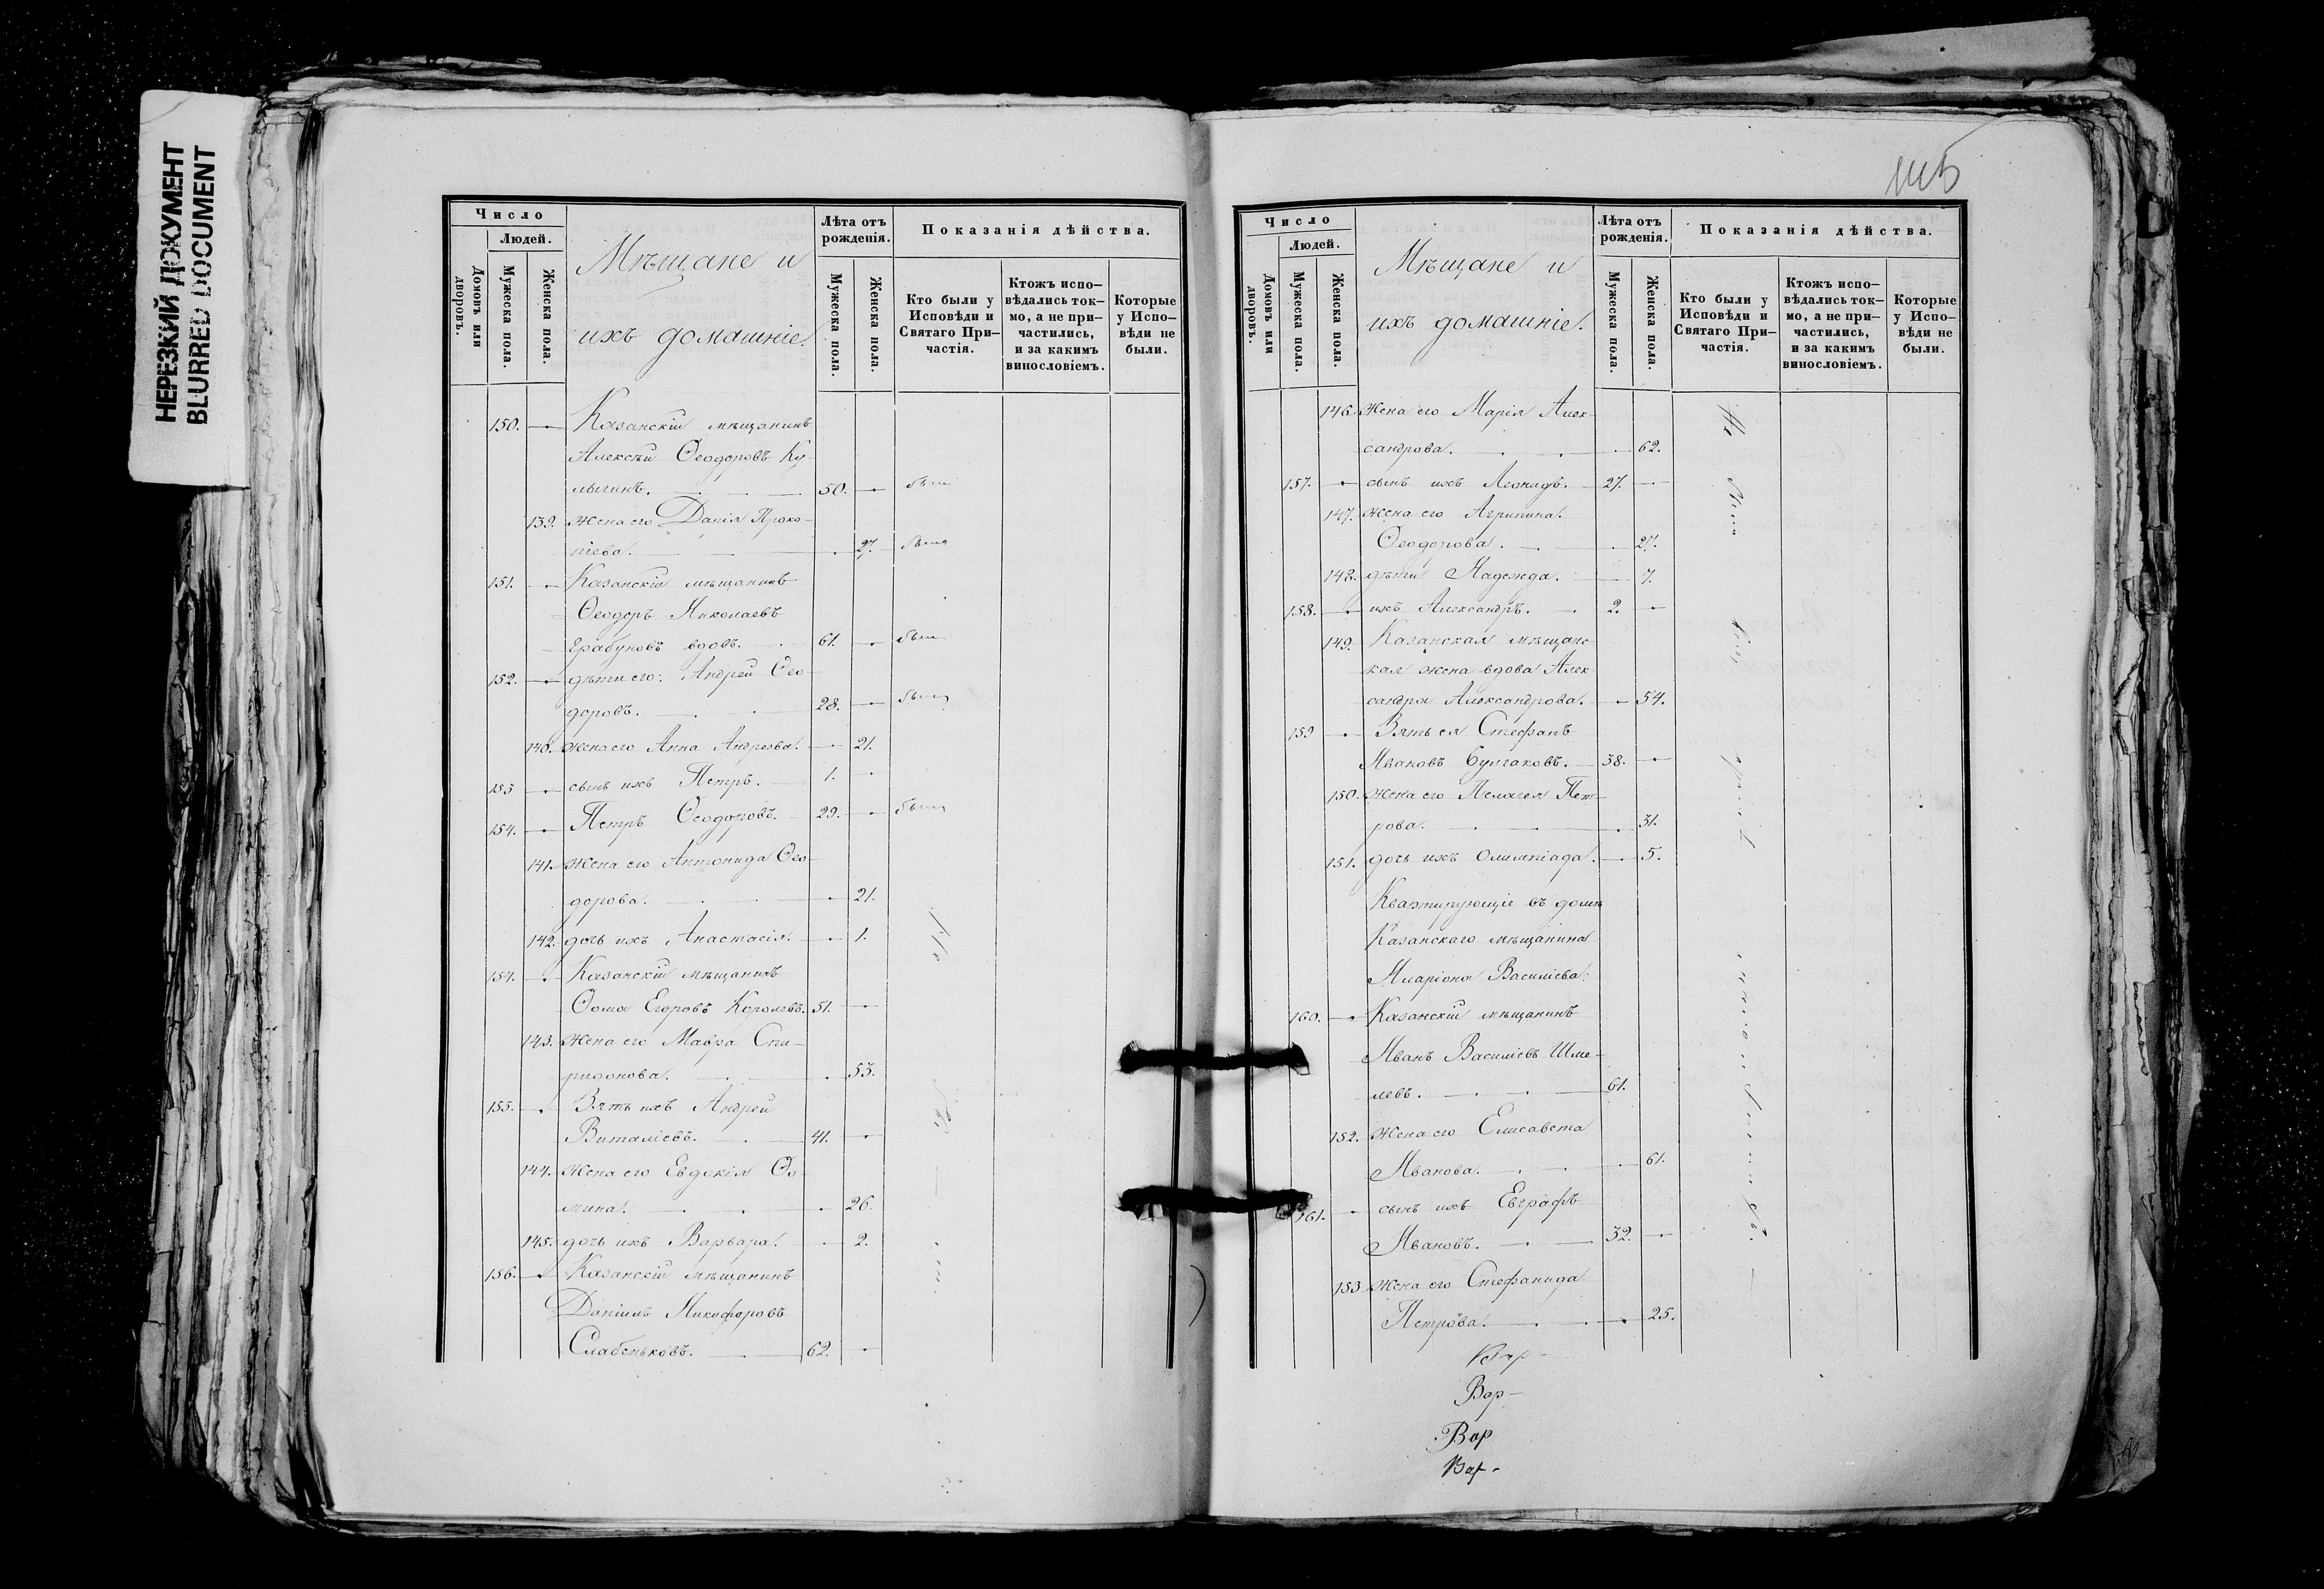 НЕРЕЗКИЙ ДОКУМЕНТ
BLURRED DOCUMENT
Число
Людей.
Домовъ или дворовъ.
Мужеска пола.
Женска пола.
Мѣщане и
ихъ домашніе.
Лѣта отъ
рожденія.
Мужеска пола.
Женска пола.
Показанія дѣйства.
Кто были у
Исповѣди и
Святаго При-
частія.
Ктожъ испо-
вѣдались ток-
мо, а не при-
частились,
и за какимъ
винословіемъ.
Которые
у Испо-
вѣди не
были.
150. Казанскій мѣщанинъ
Алексѣй Ѳеодоровъ Ку-
лыгинъ. 50. были
139. Жена его Дарія Проко-
піева. 27. были
151. Казанскій мѣщанинъ
Ѳеодоръ Николаевъ
Ерабуновъ вдовъ. 61. были
152. дѣти его: Андрей Ѳео-
доровъ. 28. были
140. Жена его Анна Андреева. 21.
153 сынъ ихъ Петръ. 1.
154. Петръ Ѳеодоровъ. 29. были
141. Жена его Антонида Ѳео-
дорова. 21.
142. дочь ихъ Анастасія. 1.
154. Казанскій мѣщанинъ
Ѳома Егоровъ Королевъ. 51.
143. Жена его Мавра Спи-
ридонова. 53.
155. Зять ихъ Андрей
Виталіевъ. 41.
144. Жена его Евдокія Ѳо-
мина. 26.
145. дочь ихъ Варвара. 2.
156. Казанскій мѣщанинъ
Даніилъ Никифоровъ
Слабеньковъ. 62.
Число
Людей.
Домовъ или дворовъ.
Мужеска пола.
Женска пола.
Мѣщане и
ихъ домашніе.
Лѣта отъ
рожденія.
Мужеска пола.
Женска пола.
Показанія дѣйства.
Кто были у
Исповѣди и
Святаго При-
частія.
Ктожъ испо-
вѣдались ток-
мо, а не при-
частились,
и за какимъ
винословіемъ.
Которые
у Испо-
вѣди не
были.
146. Жена его Марія Алек-
сандрова. 62.
157. сынъ ихъ Леонидъ. 27.
147. Жена его Агрипина
Ѳеодорова. 27.
148. дѣти Надежда. 7.
158. ихъ Александръ. 2.
149. Казанская мѣщанс-
кая жена вдова Алек-
сандра Александрова. 54.
159 Зять ея Стефанъ
Ивановъ Булгаковъ. 38.
150. Жена его Пелагея Пет-
рова. 31.
151. дочь ихъ Олимпіада. 5.
Квартирующіе въ домѣ
Казанскаго мѣщанина
Иларіона Василіева:
160. Казанскій мѣщанинъ
Иванъ Василіевъ Шме-
левъ. 61.
152. Жена его Елисавета
Иванова. 61.
161. сынъ ихъ Евграфъ
Ивановъ. 32.
153 Жена его Стефанида
Петрова. 25.
Вар-
Вар
Вар-